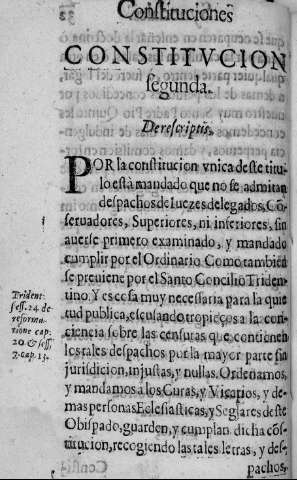 Constituciones
CONSTITVCION
segunda.
De rescriptis.
POR la constitucion vnica deste titu-
lo està mandado que no se admitan
despachos de Iuezes delegados, Cõ-
seruadores, Superiores, ni inferiores, sin
auerse primero examinado, y mandado
cumplir por el Ordinario Como tambien
se preuiene por el Santo Concilio Triden-
tino. Y es cosa muy necessaria para la quie
tud publica, escusando tropieços a la con-
ciencia sobre las censuras que contienen
los tales despachos por la mayor parte sin
jurisdicion, injustas, y nullas. Ordenamos,
y mandamos a los Curas, y Vicarios, y de-
mas personas Eclesiasticas, y Seglares deste
Obispado, guarden, y cumplan dicha cõs-
titucion, recogiendo las tales letras, y des-
pachos,
i
Trident.
sess. 24. de
reforma-
tione cap.
20. & sess.
7. cap. 13.